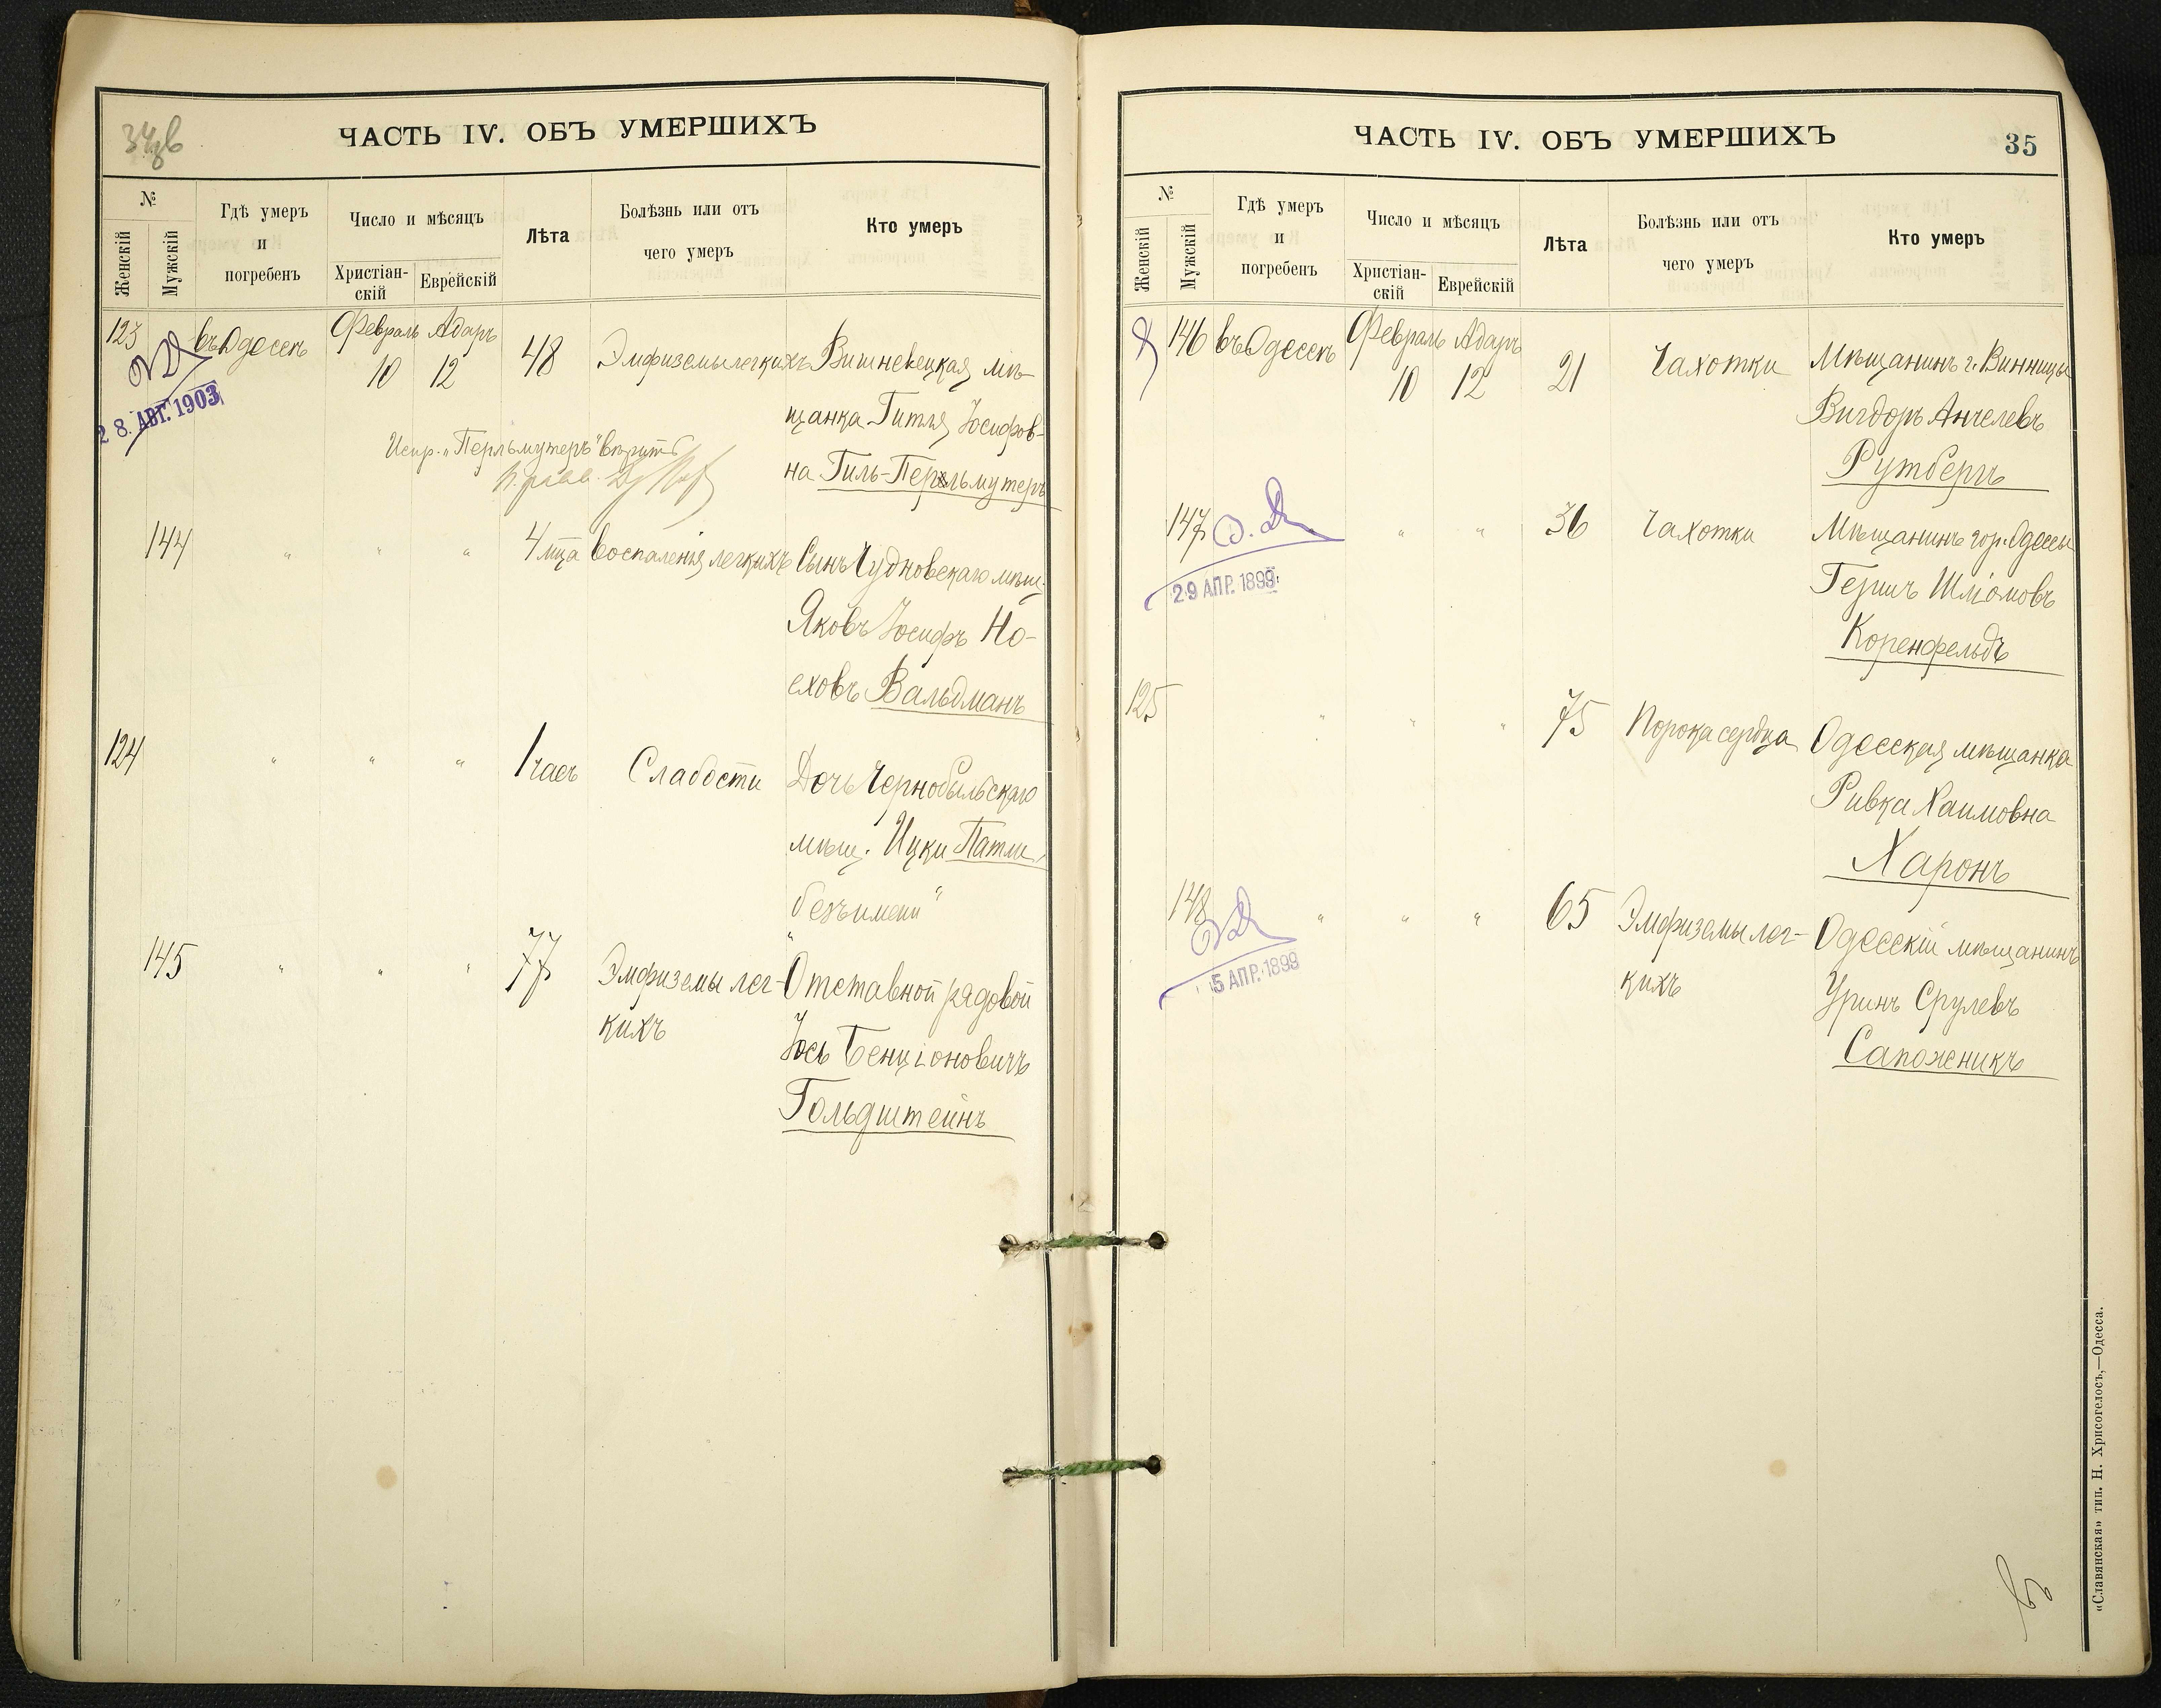 34 об
ЧАСТЬ IV. ОБЪ УМЕРШИХЪ
№
Женскій
Мужскій
Гдѣ умеръ
и
погребенъ
Число и мѣсяцъ
Христіан-
скій
Еврейскій
Лѣта
Болѣзнь или отъ
чего умеръ
Кто умеръ
123 въ Одессѣ Февраль Адаръ
10 12 48 Эмфиземы легкихъ Вишневецкая мѣ-
28. АВГ. 1903
щанка Гитля Іосифов-
Испр. „Перльмутеръ" вѣрить
на Гиль-Перльмутеръ
144 " " " 4 мца Воспаленія легкихъ Сынъ Чудновскаго мѣщ.
Яковъ Іосифъ Но-
еховъ Вальдманъ
124 " " " 1 часъ Слабости Дочь Чернобыльскаго
мѣщ. Ицки Патли
безъимени"
145 " " " 77 Эмфиземы лег- Отставной рядовой
кихъ Іось Бенціоновичъ
Гольдштейнъ
ЧАСТЬ IV. ОБЪ УМЕРШИХЪ
35
№
Женскій
Мужскій
Гдѣ умеръ
и
погребенъ
Число и мѣсяцъ
Христіан-
скій
Еврейскій
Лѣта
Болѣзнь или отъ
чего умеръ
Кто умеръ
146 въ Одессѣ Февраль Адаръ
10 12 21 Чахотки Мѣщанинъ г. Винницы
Вигдоръ Анчелевъ
Рутбергъ
147 " " 36 Чахотки Мѣщанинъ гор. Одессы
29 АПР. 1899
Гершъ Шліомовъ
Коренфельдъ
125 " " " 75 Порока сердца Одесская мѣщанка
Ривка Хаимовна
Харонъ
148 " " " 65 Эмфиземы лег- Одесскій мѣщанинъ
5 АПР. 1899
кихъ Уринъ Срулевъ
Сапожникъ
«Славянская» тип. Н. Хрисогелосъ,—Одесса.